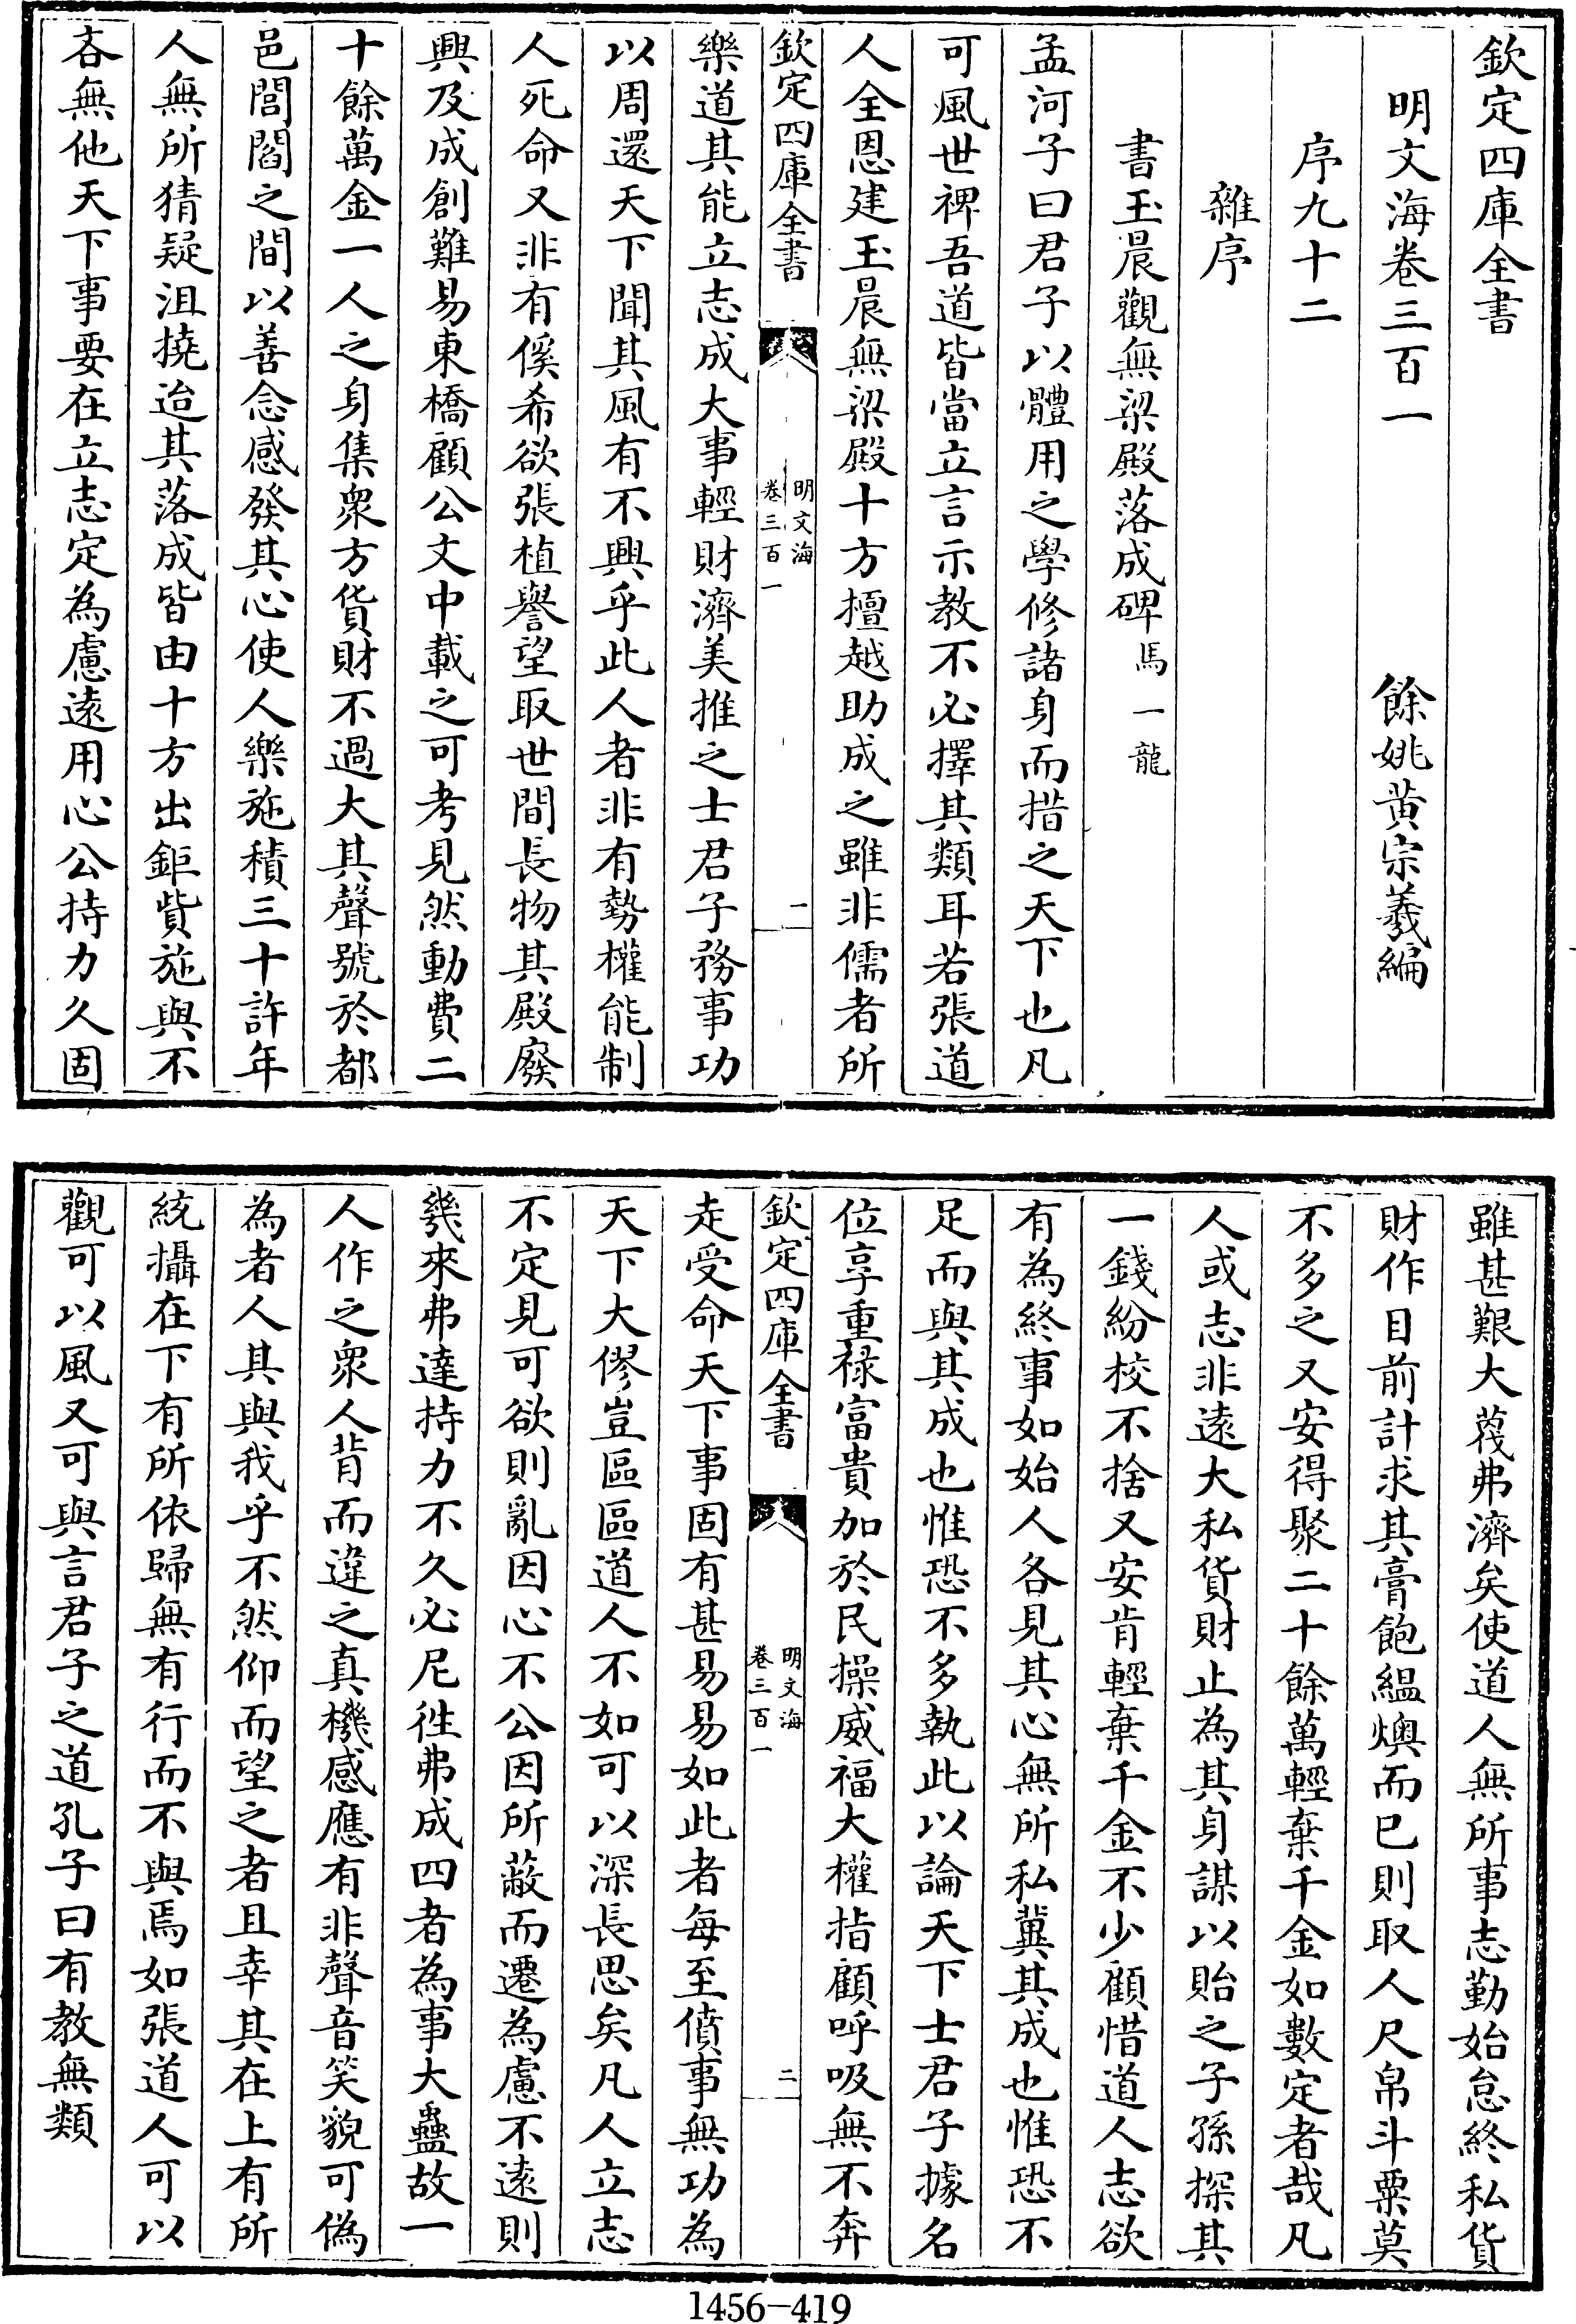 欽定四庫全書
明文海卷三百一　餘姚黃宗羲編
序九十二
雜序
書玉晨觀無梁殿落成碑馬一龍
孟河子曰君子以體用之學修諸身而措之天下也凡
可風世裨吾道皆當立言示教不必擇其類耳若張道
人全恩建玉晨無梁殿十方檀越助成之雖非儒者所
欽定四庫全書
明文海
卷三百一
一
樂道其能立志成大事輕財濟美推之士君子務事功
以周還天下聞其風有不興乎此人者非有勢權能制
人死命又非有傒希欲張植譽望取世間長物其殿廢
興及成創難易東橋顧公文中載之可考見然動費二
十餘萬金一人之身集衆方貨財不過大其聲號於都
邑閭閻之間以善念感發其心使人樂施積三十許年
人無所猜疑沮撓迨其落成皆由十方出鉅貲施與不
吝無他天下事要在立志定為慮遠用心公持力久固
雖甚艱大蔑弗濟矣使道人無所事志勤始怠終私貨
財作目前計求其膏飽縕燠而已則取人尺帛斗粟莫
不多之又安得聚二十餘萬輕棄千金如數定者哉凡
人或志非遠大私貨財止為其身謀以貽之子孫探其
一錢紛校不捨又安肯輕棄千金不少顧惜道人志欲
有為終事如始人各見其心無所私冀其成也惟恐不
足而與其成也惟恐不多執此以論天下士君子據名
位享重祿富貴加於民操威福大權指顧呼吸無不奔
欽定四庫全書
明文海
卷三百一
二
走受命天下事固有甚易易如此者每至僨事無功為
天下大僇豈區區道人不如可以深長思矣凡人立志
不定見可欲則亂因心不公因所蔽而遷為慮不遠則
幾來弗達持力不久必尼徃弗成四者為事大蠱故一
人作之衆人背而違之真機感應有非聲音笑貌可偽
為者人其與我乎不然仰而望之者且幸其在上有所
統攝在下有所依歸無有行而不與焉如張道人可以
觀可以風又可與言君子之道孔子曰有教無類
1456-419